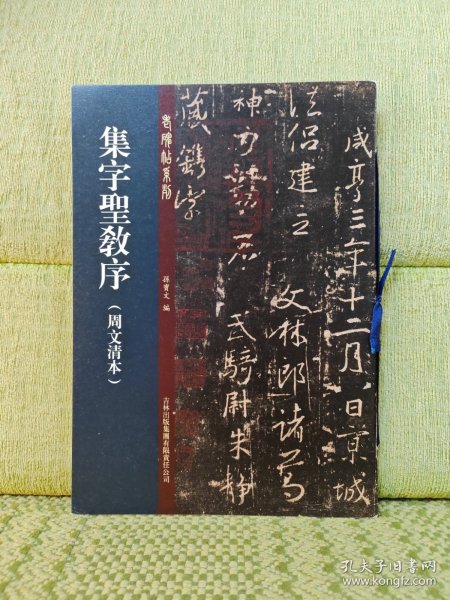 集字聖教序
（周文清本）
老碑帖系列
孫寶文 編
吉林出版集團有限責任公司
咸亨三年十二月八日京城
法侶建立 文林郎諸葛
神力勒石 武騎尉朱靜
藏鐫字
孔夫子旧书网
www.kongfz.com